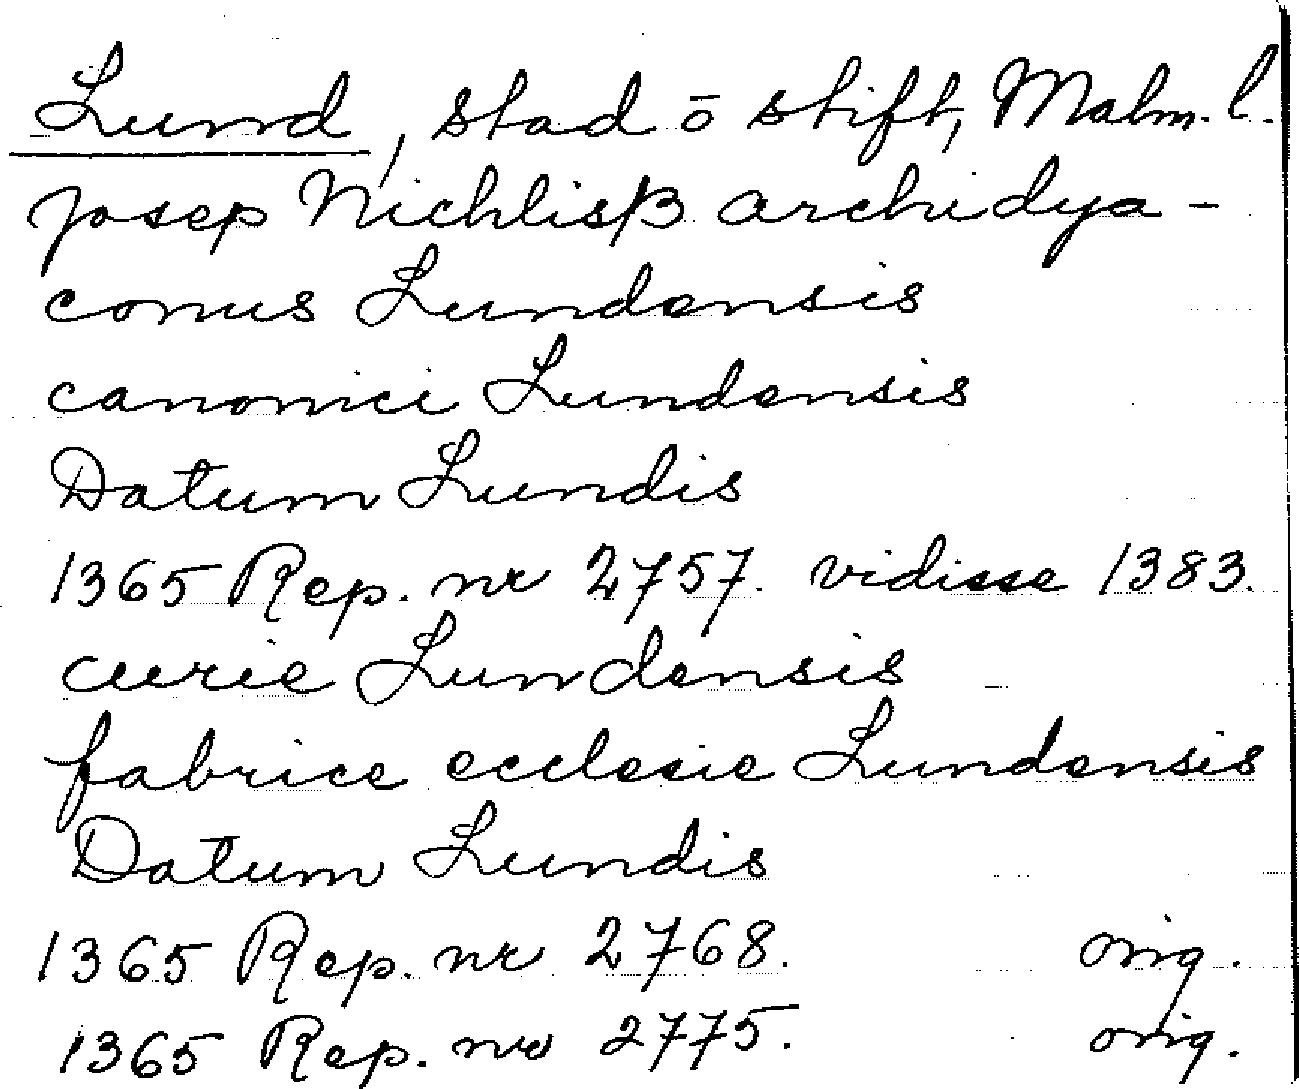 Lund, stad ō stift, Malm. l.
Josep Nichlisß archidya-
conus Lundensis
canonici Lundensis
Datum Lundis
1365 Rep. nr 2757. vidisse 1383.
curie Lundensis
fabrice ecclesie Lundensis
Datum Lundis
1365 Rep. nr 2768. orig.
1365 Rep. nr 2775. orig.